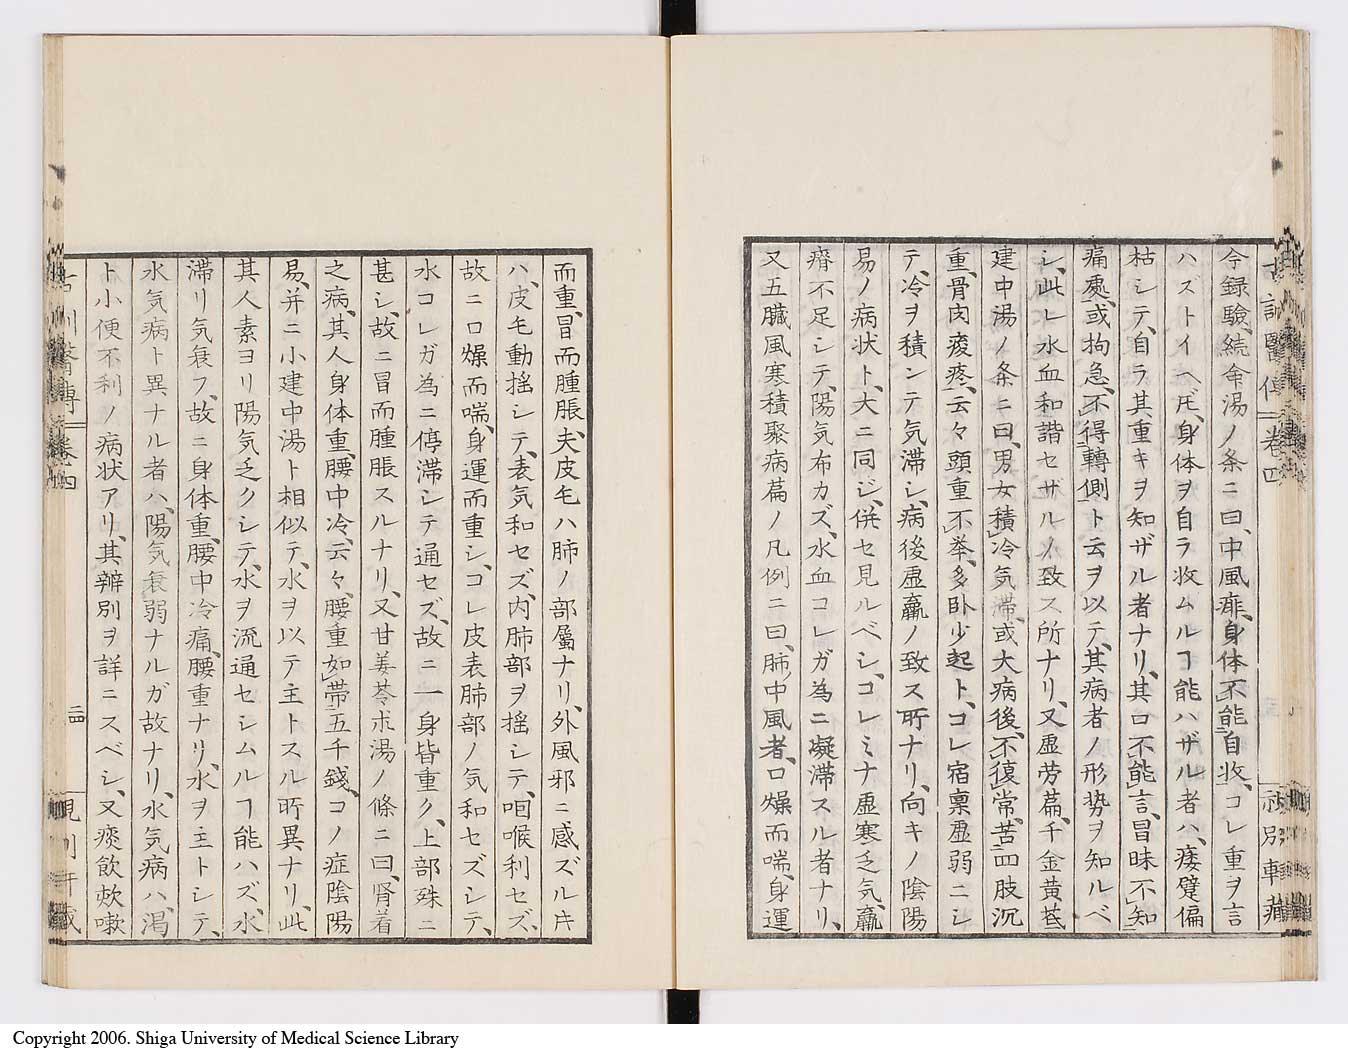 今録験、続命湯ノ条ニ曰、中風痱、身体不能自收、コレ重ヲ言
ハズトイヘ𪜈、身体ヲ自ラ收ムルヿ能ハザル者ハ、痿躄偏
枯シテ、自ラ其重キヲ知ザル者ナリ、其口不能言、冒昧不知
痛處、或拘急、不得轉側ト云ヲ以テ、其病者ノ形势ヲ知ルベ
シ、此レ水血和諧セザルノ致ス所ナリ、又虚劳篇、千金黄芪
建中湯ノ条ニ曰、男女積冷気滞、或大病後、不復常、苦四肢沉
重、骨肉痠疼、云々頭重不举、多卧少起ト、コレ宿稟虚弱ニシ
テ、冷ヲ積ンテ気滞シ、病後虚羸ノ致ス所ナリ、向キノ陰陽
易ノ病状ト、大ニ同ジ、併セ見ルベシ、コレミナ虚寒乏気、羸
瘠不足シテ、陽気布カズ、水血コレガ為ニ凝滞スル者ナリ、
又五臓風寒積聚病篇ノ凡例ニ曰、肺中風者、口燥而喘、身運
而重、冒而腫脹、夫皮毛ハ肺ノ部屬ナリ、外風邪ニ感ズル片
ハ、皮毛動揺シテ、表気和セズ、内肺部ヲ揺シテ、咽喉利セズ、
故ニ口燥而喘、身運而重シ、コレ皮表肺部ノ気和セズシテ、
水コレガ為ニ停滞シテ通セズ、故ニ一身皆重ク、上部殊ニ
甚シ、故ニ冒而腫脹スルナリ、又甘姜苓朮湯ノ條ニ曰、腎着
之病、其人身体重、腰中冷、云々、腰重如帯五千錢、コノ症陰陽
易、并ニ小建中湯ト相似テ、水ヲ以テ主トスル所異ナリ、此
其人素ヨリ陽気乏クシテ、水ヲ流通セシムルヿ能ハズ、水
滞リ気衰フ、故ニ身体重、腰中冷痛、腰重ナリ、水ヲ主トシテ、
水気病ト異ナル者ハ、陽気衰弱ナルガ故ナリ、水気病ハ、渇
ト小便不利ノ病状アリ、其辨別ヲ詳ニスベシ、又痰飲欬嗽
古訓醫傳 卷四
二四
Copyright 2006. Shiga University of Medical Science Library